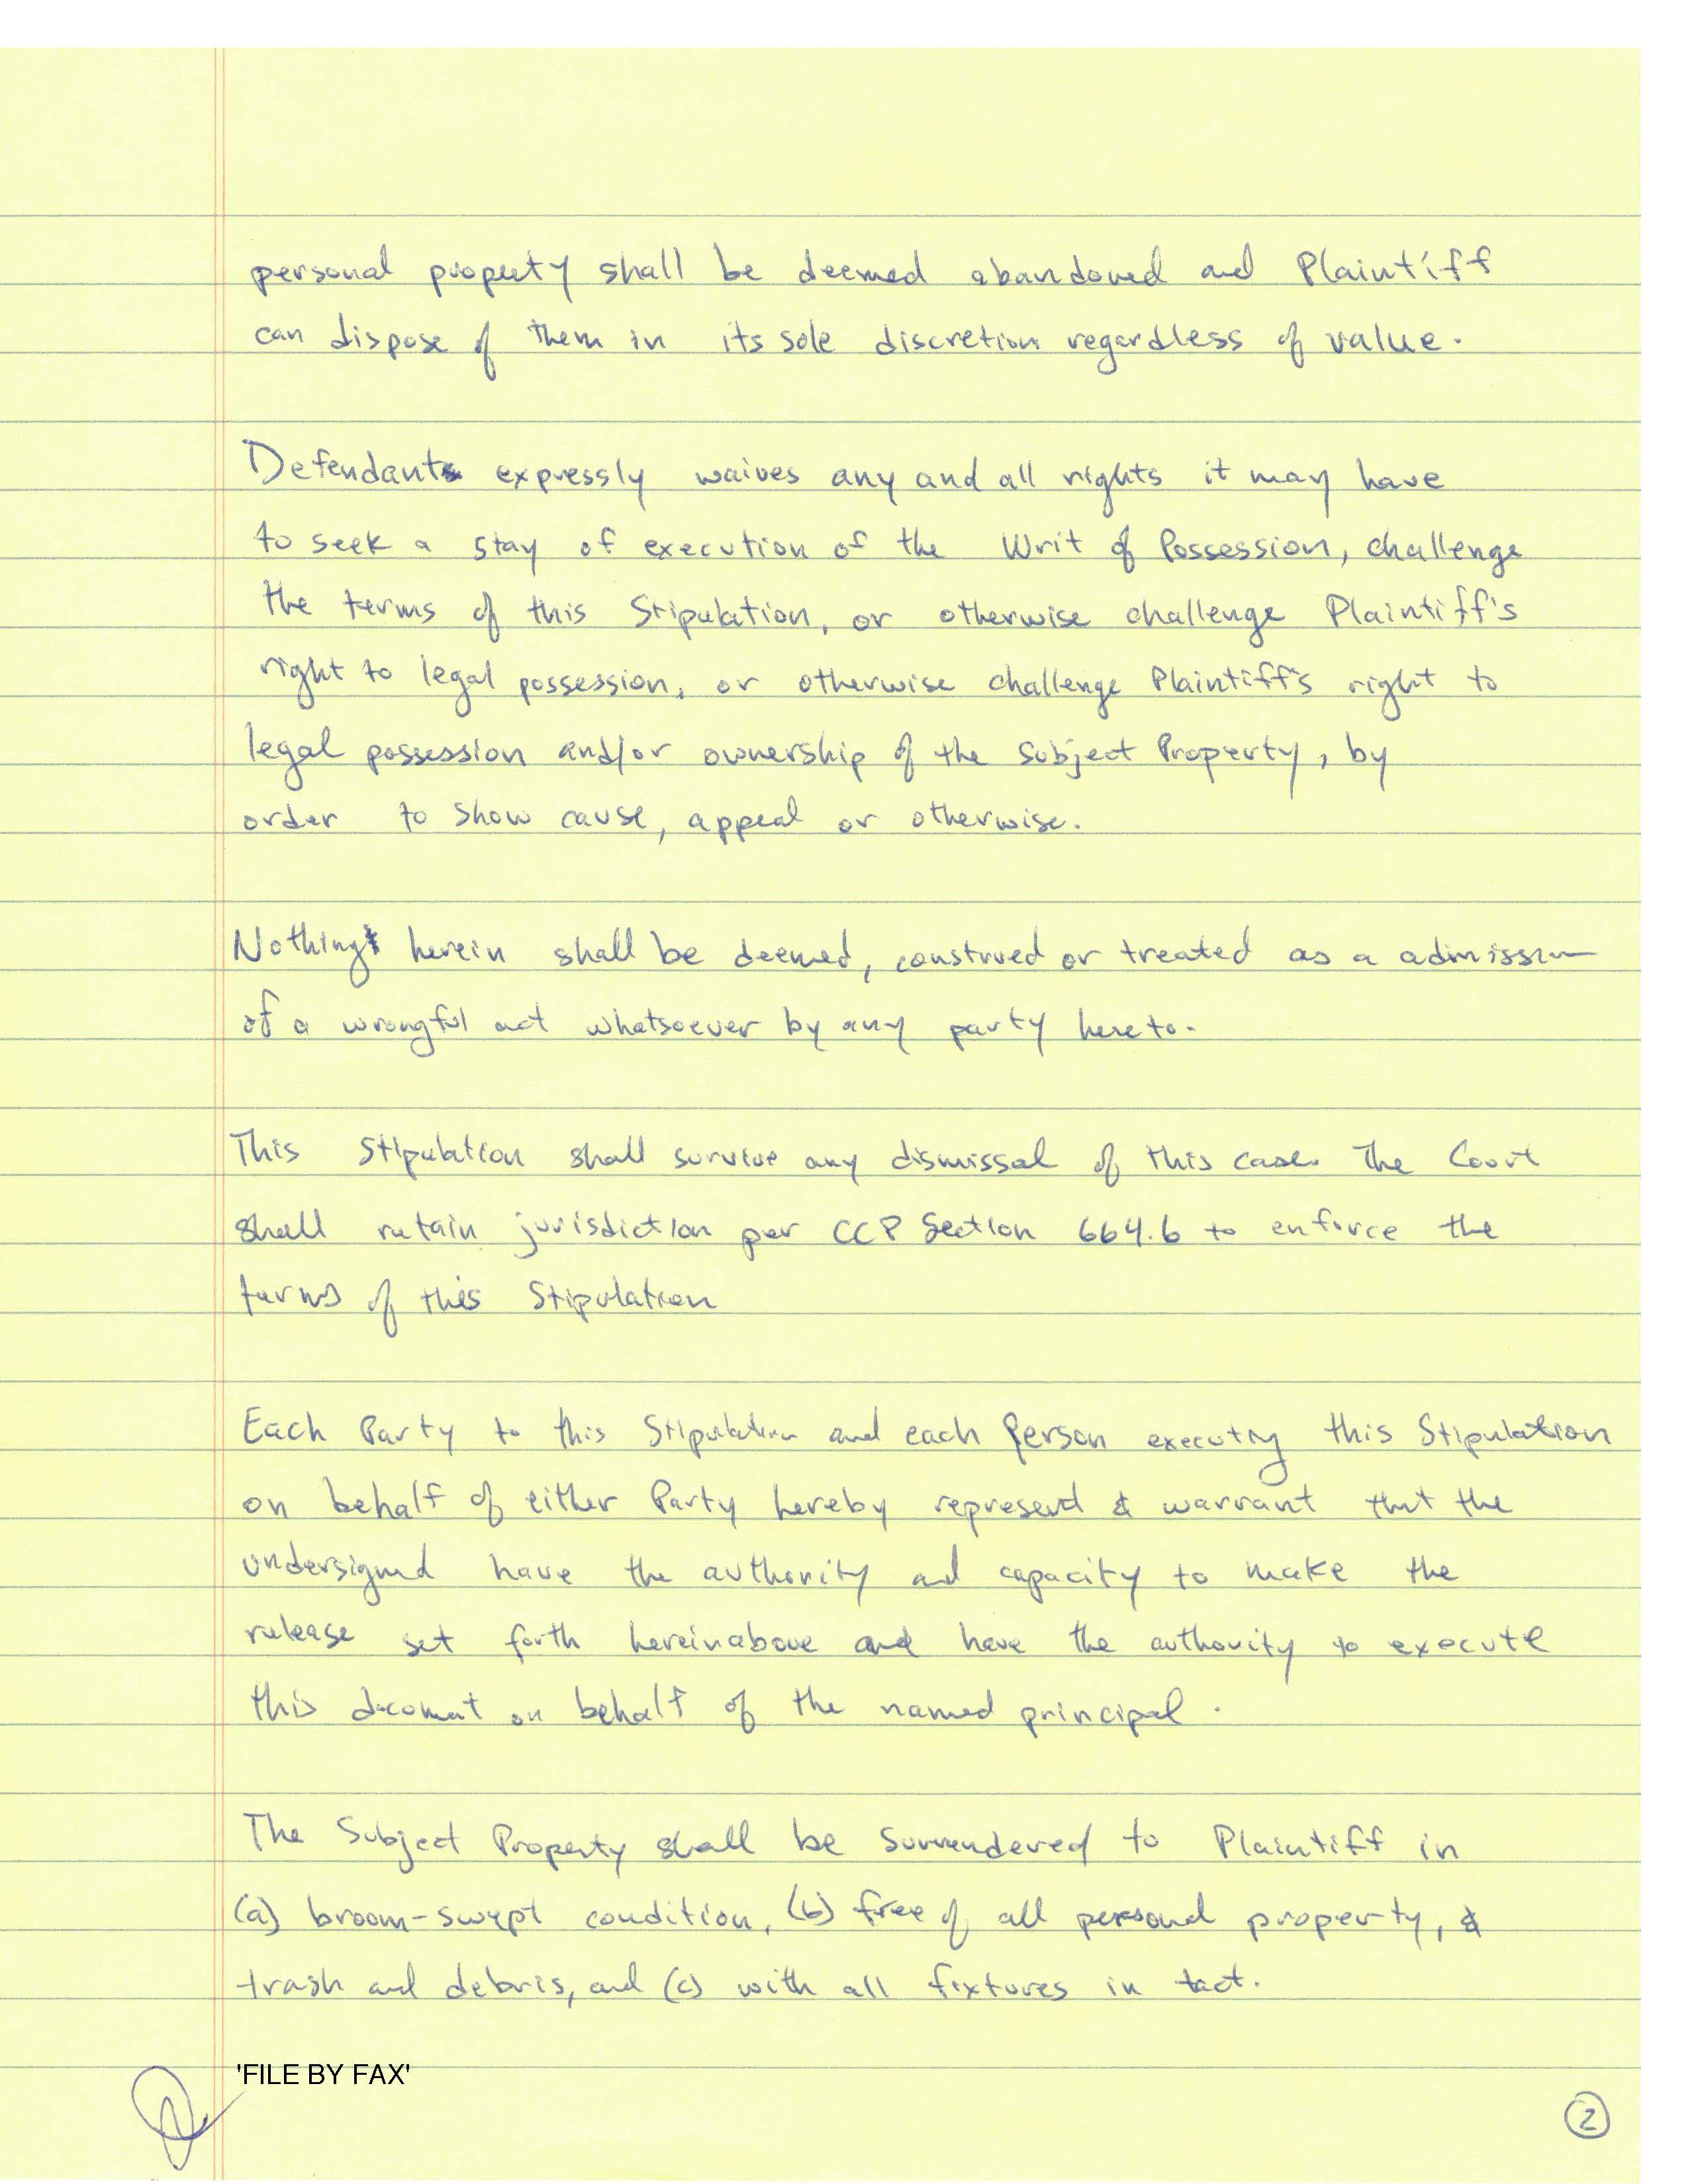 personal property shall be deemed abandoned and Plaintiff
can dispose of them in its sole discretion regardless of value.
Defendants expressly waives any and all rights it may have
to seek a stay of execution of the Writ of Possession, challenge
the terms of this Stipulation, or otherwise challenge Plaintiff's
right to legal possession, or otherwise challenge Plaintiff's right to
legal possession and/or ownership of the Subject Property, by
order to show cause, appeal or otherwise.
Nothing herein shall be deemed, construed or treated as a admission
of a wrongful act whatsoever by any party hereto.
This Stipulation shall survive any dismissal of this case. The Court
shall retain jurisdiction per CCP Section 664.6 to enforce the
terms of this Stipulation
Each Party to this Stipulation and each Person executing this Stipulation
on behalf of either Party hereby represent & warrant that the
undersigned have the authority and capacity to make the
release set forth hereinabove and have the authority to execute
this document on behalf of the named principal.
The Subject Property shall be surrendered to Plaintiff in
(a) broom-swept condition, (b) free of all personal property, &
trash and debris, and (c) with all fixtures in tact.
'FILE BY FAX'
2